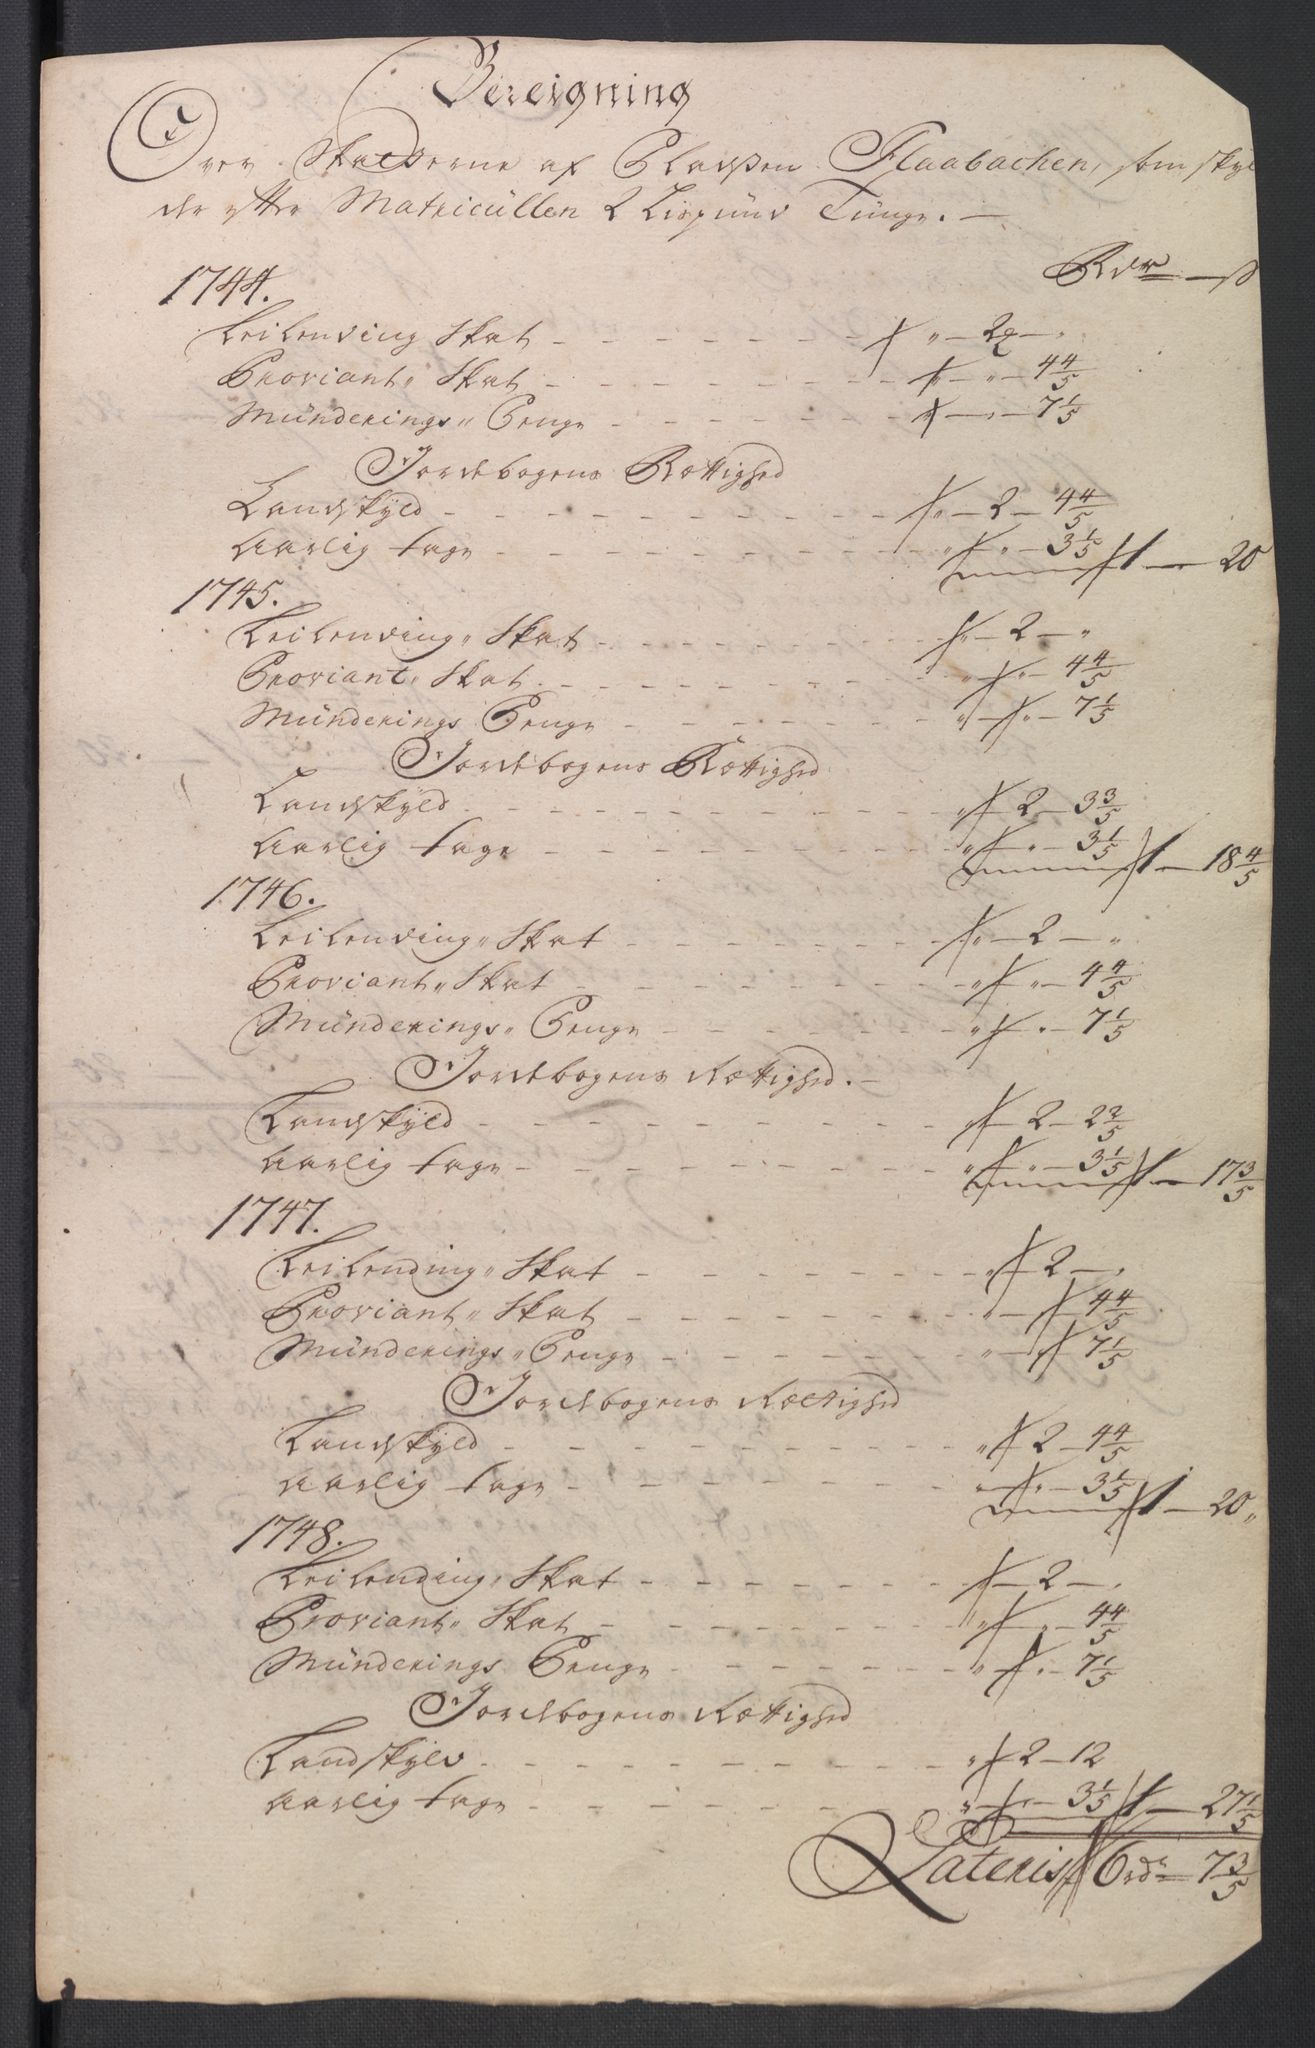 Bereigning
Over Skatterne af Pladsen Flaabachen, som skyl
der efter Matricüllen 2 Lispund Tunge. —
Rdr — ß
1744.
Leilending Skat — " — 2 — "
Proviant" Skat — " — " — 4 4/5
Münderings" Penge — " — 7 1/5
Jordebogens Rettighed
Landskÿld — " — 2 — 4 4/5
Aarlig tage — " — " — 3 1/5 1 — 20
1745.
Leilending" Skat — " — 2 — "
Proviant" Skat — " — " — 4 4/5
Münderings Penge — " — " — 7 1/5
Jordebogens Rettighed
Landskÿld — " 2 — 3 3/5
Aarlig tage — " — " — 3 1/5 1 — 18 4/5
1746.
Leilending" Skat — " — 2 — "
Proviant" Skat — " — " — 4 4/5
Münderings" Penge — " — " — 7 1/5
Jordebogens Rettighed. —
Landskÿld — " — 2 — 2 2/5
Aarlig tage — " — " — 3 1/5 1 — 17 3/5
1747.
Leilending" Skat — " — 2 — "
Proviant" Skat — " — 4 4/5
Münderings" Penge — " — 7 1/5
Jordebogens Rettighed
Landskÿld — " 2 — 4 4/5
Aarlig tage — " — " — 3 1/5 1 — 20 "
1748.
Leilending" Skat — 2 — "
Proviant" Skat — " — " — 4 4/5
Münderings Penge — " — " — 7 1/5
Jordebogens Rettighed
Landskÿld — " — 2 — 12
Aarlig tage — " — " — 3 1/5 1 — 27 1/5
Lateris 6 rdr 7 3/5